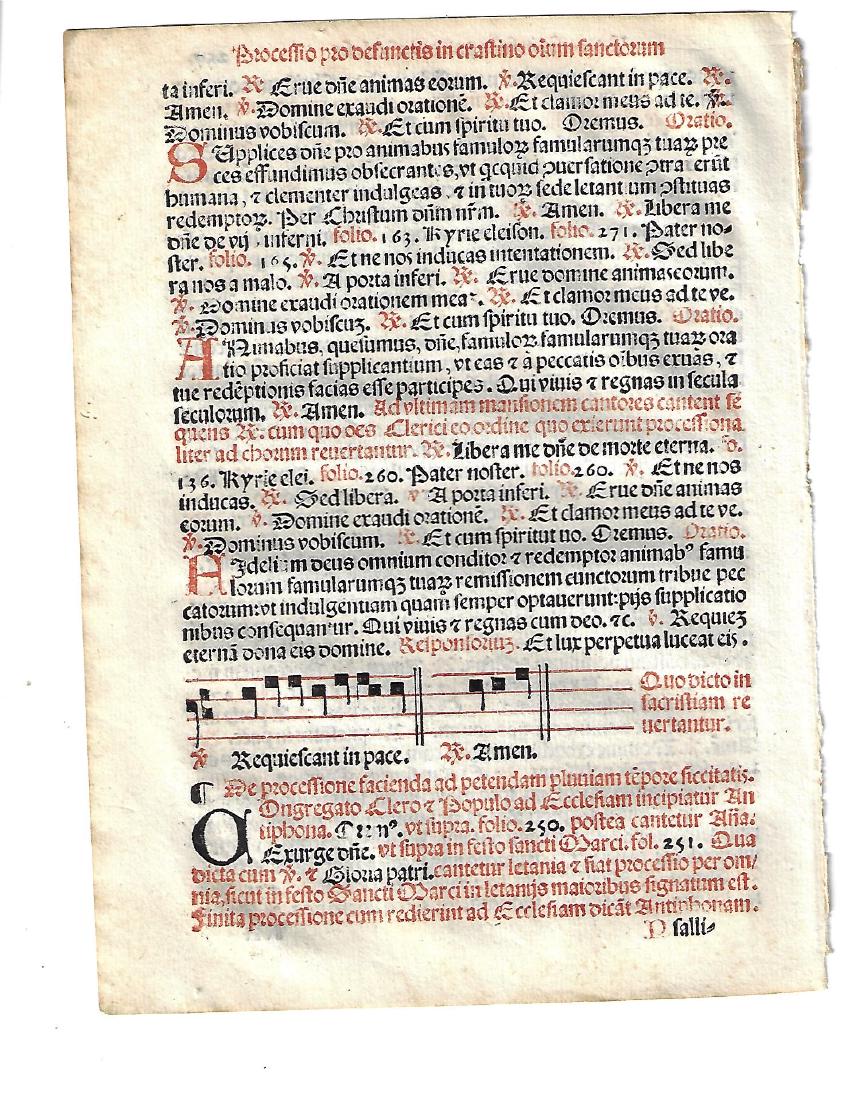 Processio pro defunctis in crastino oium sanctorum
ta inferi. ℟. Erue dñe animas eorum. ℣. Requiescant in pace. ℟.
Amen. ℣. Domine exaudi orationē. ℟. Et clamor meus ad te. ℣.
Dominus vobiscum. ℟. Et cum spiritu tuo. Oremus. Oratio.
SUpplices dñe pro animabus famuloꝝ famularumqꝫ tuaꝝ pre
ces effundimus obsecrantes, vt qcquid ↄuersatione ↄtraxerūt
humana, ⁊ clementer indulgeas, ⁊ in tuoꝝ sede letantium ↄstituas
redemptoꝝ. Per Christum dñm nr̄m. ℟. Amen. ℟. Libera me
dñe de vijs inferni. folio. 163. Kyrie eleison. folio. 271. Pater no-
ster. folio. 165. ℣. Et ne nos inducas intentationem. ℟. Sed libe
ra nos a malo. ℣. A porta inferi. ℟. Erue domine animas eorum.
℣. Domine exaudi orationem meaz. ℟. Et clamor meus ad te ve.
℣. Dominus vobiscuꝫ. ℟. Et cum spiritu tuo. Oremus. Oratio.
ANimabus, quesumus, dñe, famuloꝝ famularumqꝫ tuaꝝ ora
tio proficiat supplicantium, vt eas ⁊ à peccatis oībus exuas, ⁊
tue redēptionis facias esse participes. Qui viuis ⁊ regnas in secula
seculorum. ℟. Amen. Ad vltimam mansionem cantores cantent sé
quens ℟. cum quo oēs Clerici eo ordine quo exierunt processiona
liter ad chorum reuertantur. ℟. Libera me dñe de morte eterna. fo.
136. Kyrie elei. folio. 260. Pater noster. folio. 260. ℣. Et ne nos
inducas. ℟. Sed libera. ℣ A porta inferi. ℟. Erue dñe animas
eorum. ℣. Domine exaudi orationē. ℟. Et clamor meus ad te ve.
℣. Dominus vobiscum. ℟. Et cum spiritut uo. Oremus. Oratio.
FIdelium deus omnium conditor ⁊ redemptor animabꝰ famu
lorum famularumqꝫ tuaꝝ remissionem cunctorum tribue pec
catorum: vt indulgentiam quam semper optauerunt: pijs supplicatio
nibus consequantur. Qui viuis ⁊ regnas cum deo. ⁊c. ℣. Requieꝫ
eternā dona eis domine. Responsoriuꝫ. Et lux perpetua luceat eis.
Quo dicto in
sacristiam re
uertantur.
℣ Requiescant in pace. ℟. Amen.
¶ De processione facienda ad petendam pluuiam tēpore siccitatis.
COngregato Clero ⁊ Populo ad Ecclesiam incipiatur An
tiphona. vt supra. folio. 250. postea cantetur Aña:
Exurge dñe. vt supra in festo sancti Marci. fol. 251. Qua
dicta cum ℣. ⁊ Gloria patri. cantetur letania ⁊ fiat processio per om/
nia, sicut in festo Sancti Marci in letanijs maioribus signatum est.
Finita processione cum redierint ad Ecclesiam dicāt Antiphonam.
D salli-